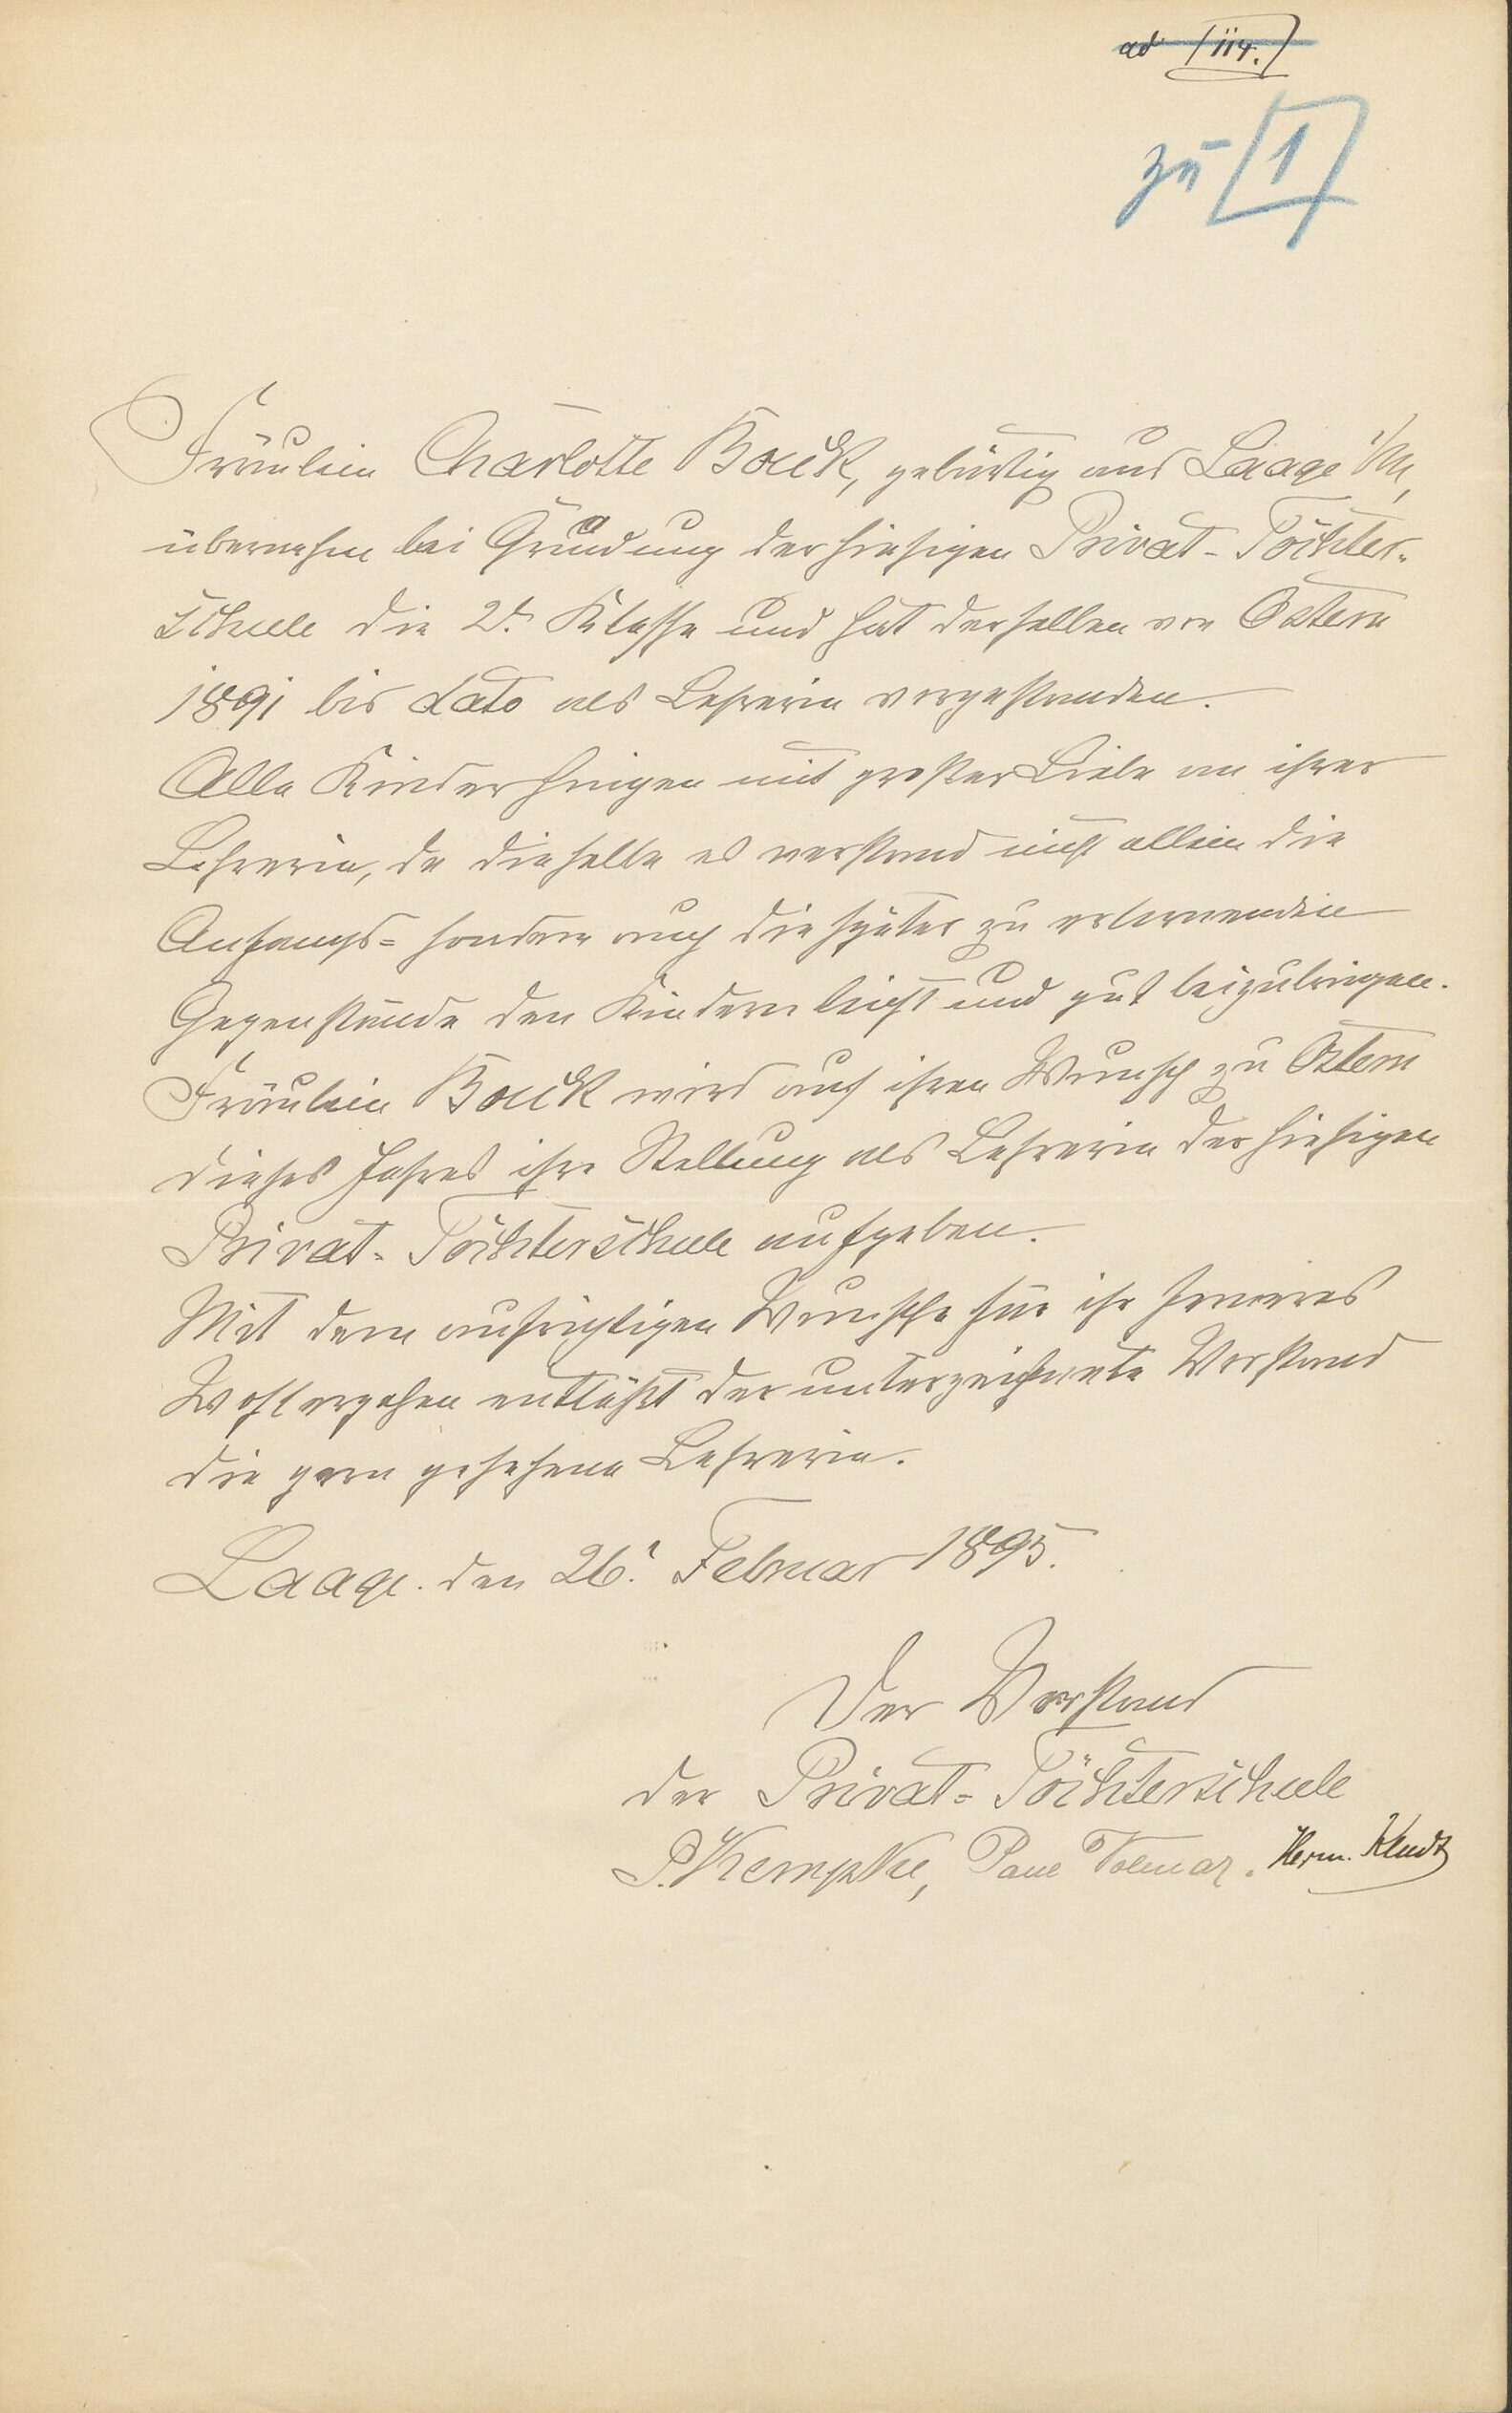 ad [114.]
zu [1]
Fräulein Charlotte Bock, gebürtig aus Laage i/M,
übernahm bei Gründung der hiesigen Privat-Töchter-
schule die 2te Klasse und hat derselben von Ostern
1891 bis dato als Lehrerin vorgestanden.
Alle Kinder hingen mit großer Liebe an ihrer
Lehrerin, da dieselbe es verstand nicht allein die
Anfangs- sondern auch die später zu erlernenden
Gegenstände den Kindern leicht und gut beizubringen.
Fräulein Bock wird auf ihren Wunsch zu Ostern
dieses Jahres ihre Stellung als Lehrerin der hiesigen
Privat-Töchterschule aufgeben.
Mit dem aufrichtigen Wunsche für ihr ferneres
Wohlergehen entläßt der unterzeichnete Vorstand
die gern gesehene Lehrerin.
Laage. den 26. Februar 1895.
Der Vorstand
der Privat-Töchterschule
P. Kempke, Paul Herm.